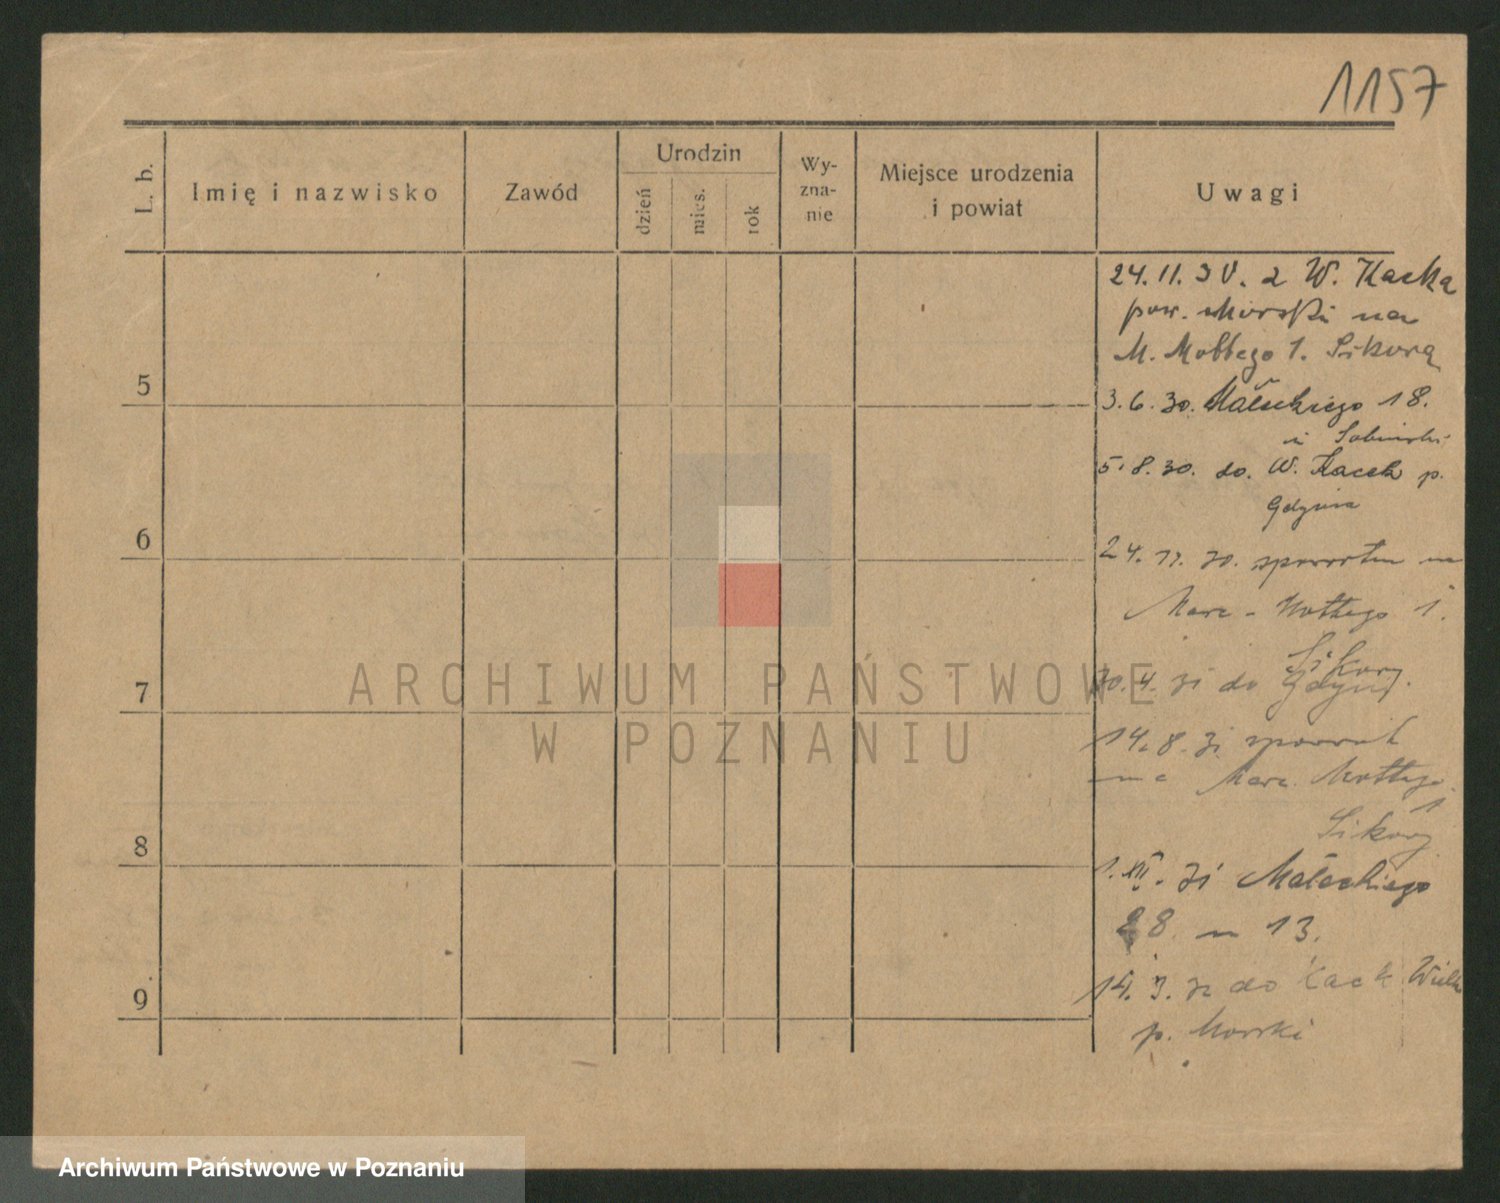 1157
L. b.
Imię i nazwisko
Zawód
Urodzin
dzień
mies.
rok
Wy-
zna-
nie
Miejsce urodzenia
i powiat
Uwagi
24. 11. W. Kacka
pow. Morski na
M. Mottego 1. Sikorą
5
3. 6. 30. Małeckiego 18.
5. 8. 30. do W. Kacek p.
Gdynia
6
24. 11. 30. na
Marc - Mottego 1.
Sikory
7
30. 4. 31 do Gdyni.
14. 8. 31
na Marc. Mottego
1
Sikory
8
1. XII. 31 Małeckiego
28 m 13.
14. 3. 32 do Kack Wielk
9
p. Morski
ARCHIWUM PAŃSTWOWE
W POZNANIU
Archiwum Państwowe w Poznaniu